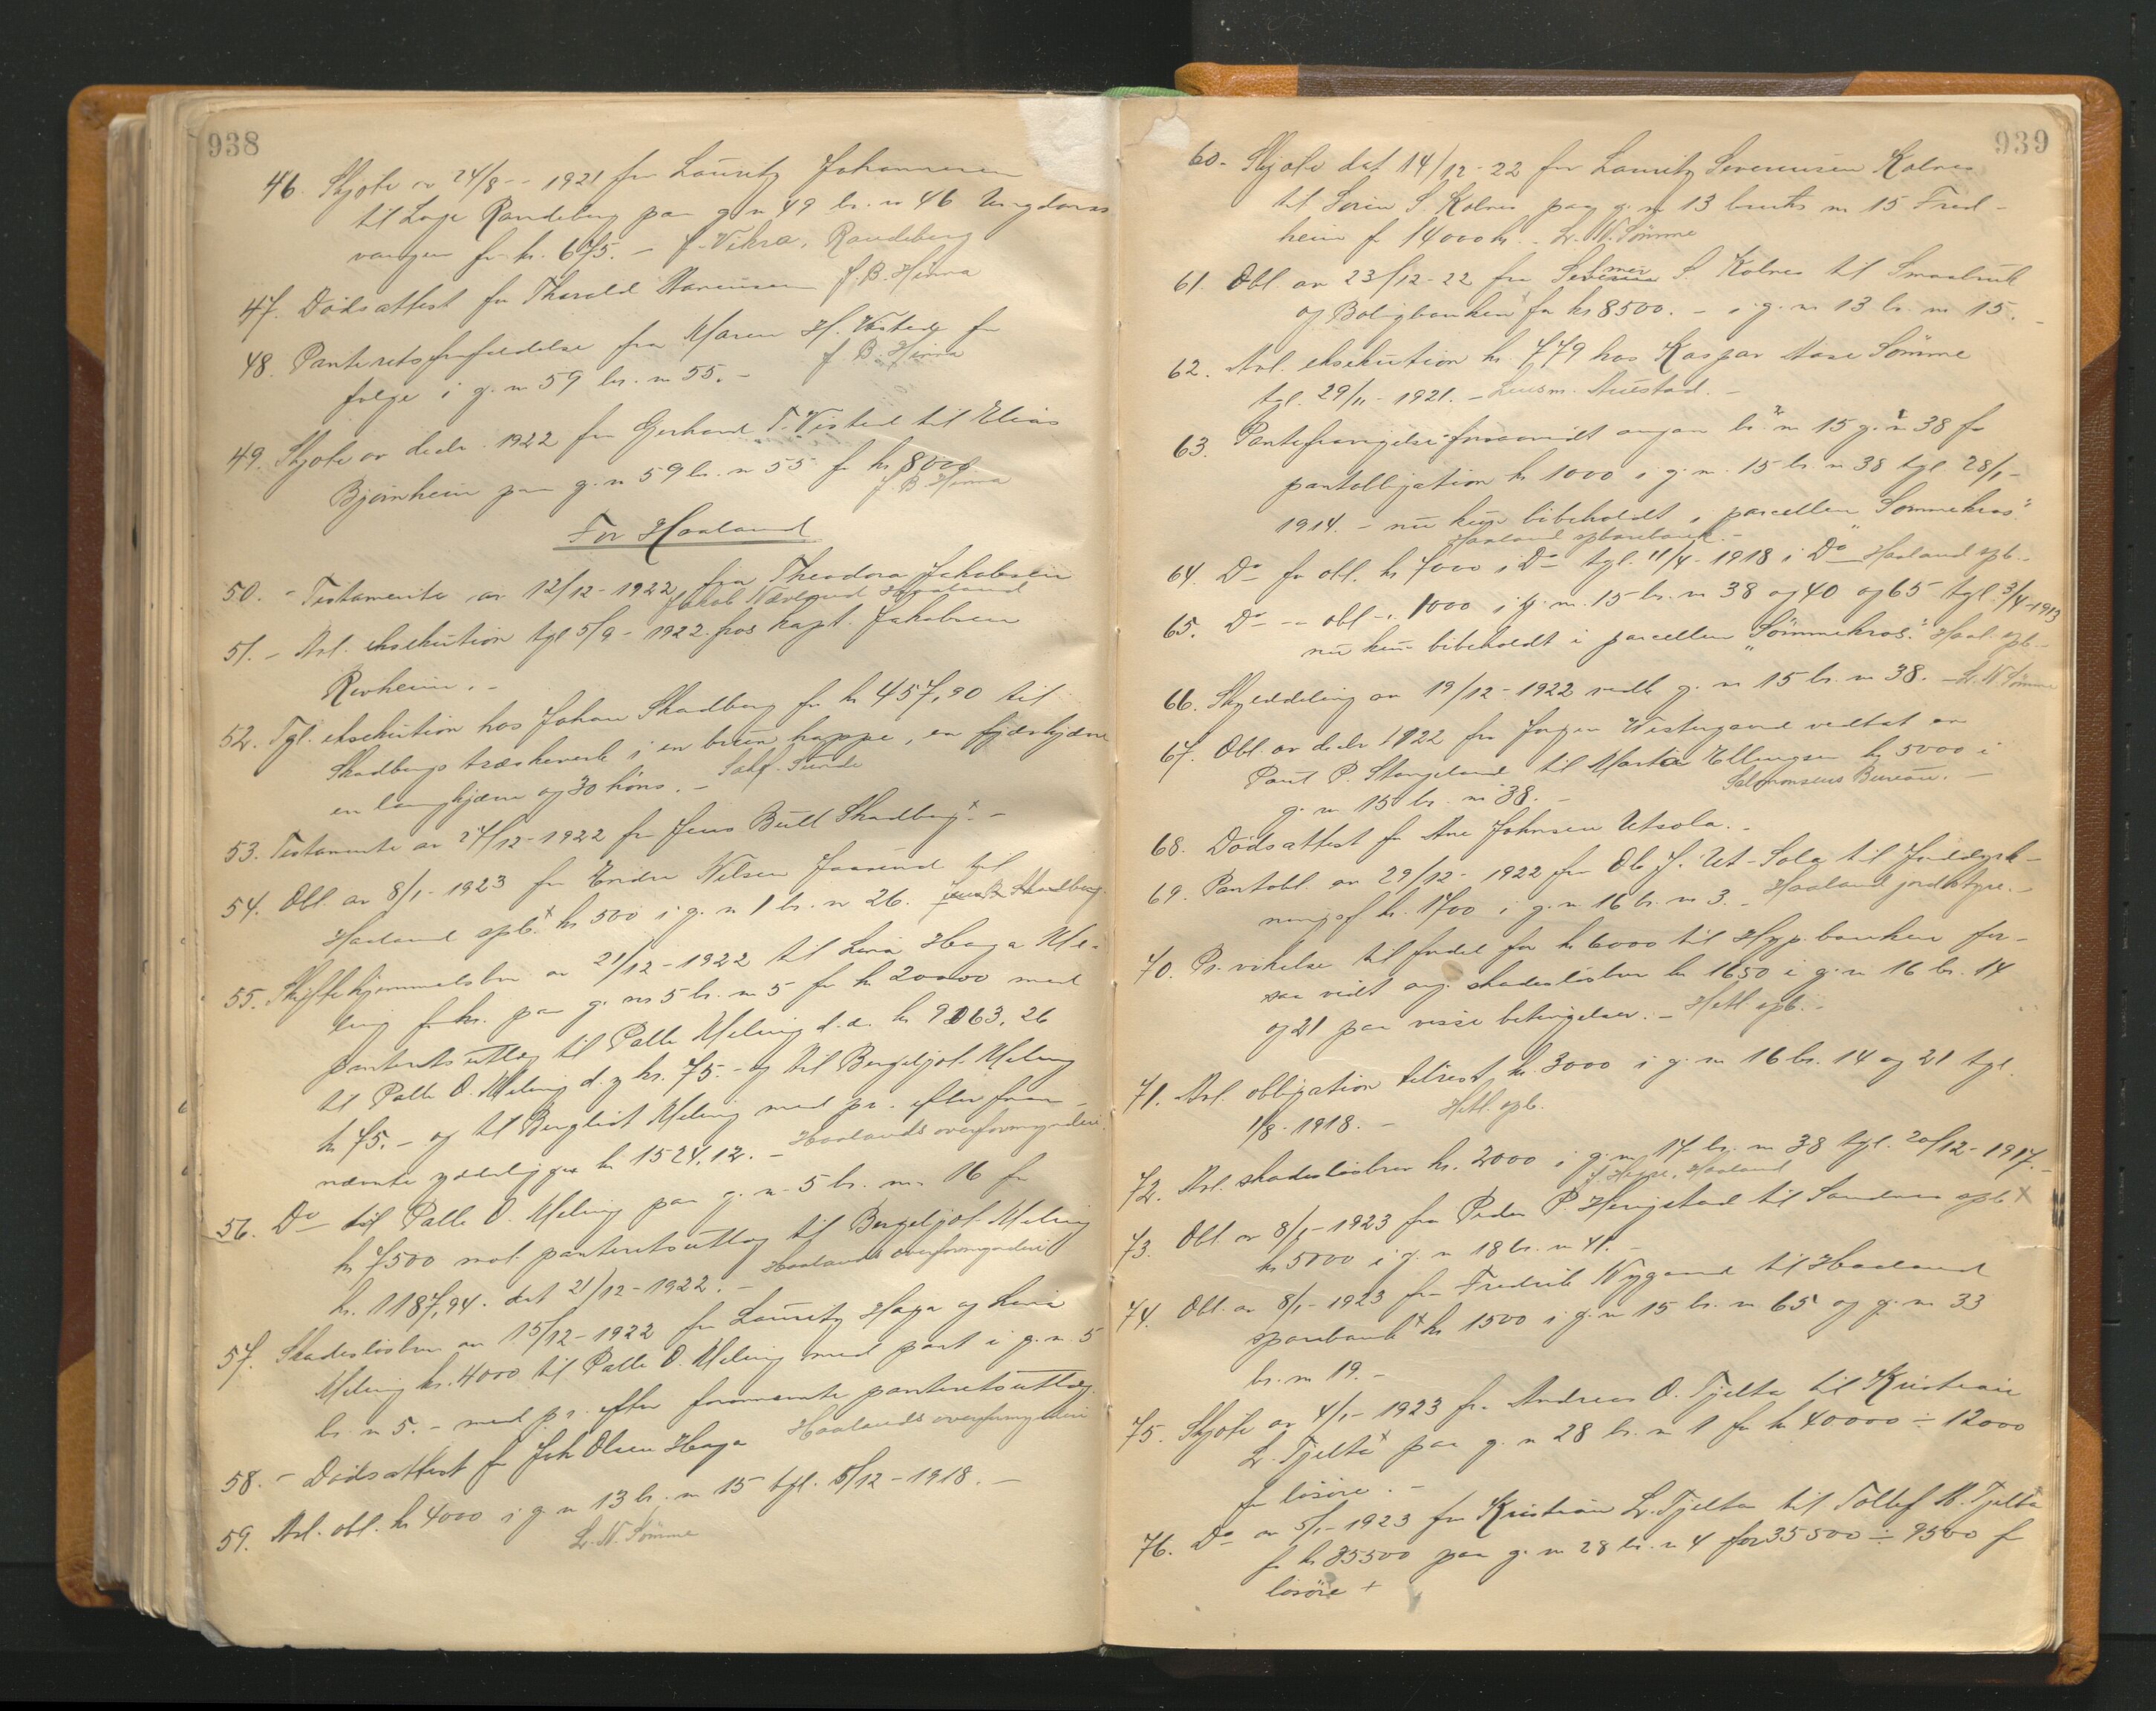 938
46. Skjöte av 24/8 - 1921 fra Lauritz Johannesen
til Lage Randeberg paa g. n. 49 br. n. 46 Ungdoms
vangen for kr. 675. - J. Vikra, Randeberg
47. Dödsattest for Thorald J. B. Hinna
48. Panteretsfrafaldelse fra Maren H. Visted for
folge i g. n. 59 br. n. 55. - J. B. Hinna
49. Skjöte av decbr. 1922 fra Gerhard T. Visted til Elias
Bjørnheim paa g. n. 59 br. n. 55 for kr. 8000
J. B. Hinna
For Haaland
50. - Testamente av 12/12 - 1922 fra Theodora Jakobsen
Jakob Haaland
51. - Avl. eksekution tgl. 5/9 - 1922 hos kapt. Jakobsen
Revheim. -
52. Tgl. eksekution hos Johan Skadberg for kr. 457,90 til
Skadbergs træskeverk i en brun hoppe, en fjærkjærre
en langkjærre og 30 höns. - Sakf. Sunde
53. Testamente av 27/12 - 1922 fra Jens Bull Skadberg x. -
54. Obl. av 8/1 - 1923 fra Endre Nilsen Jaasund til
Haaland spb. x kr. 500 i g. n. 1 br. n. 26. Jens B. Skadberg.
55. Skiftehjemmelsbrev av 21/12 - 1922 til Lava Haga Me-
ling f. kr. paa g. nr. 5 br. n. 5 for kr. 20000 med
panteretsutlæg til Palle Meling d. æ. kr. 9063,26
til Palle O. Meling d. y. kr. 75. - og til Bergeljot Meling
kr. 75. - og til Bergliot Meling med pr. efter foran-
nævnte yderligere kr. 1524,12. - Haalands overformynderi.
56. Do til Palle O. Meling paa g. n. 5 br. nr. 16 for
kr. 7500 mot panteretsutlæg til Bergeljot Meling
kr. 1187,94. dat 21/12 - 1922. - Haalands overformynderi
57. Skadeslösbrev av 15/12 - 1922 fra Lauritz Haga og Lava
Meling kr. 4000 til Palle O. Meling med pant i g. n. 5
br. n. 5. - med pr. efter forannævnte panteretsutlæg.
58. - Dödsattest for Joh. Olsen Haga Haalands overformynderi
59. Avl. obl. kr. 4000 i g. n. 13 br. n. 15 tgl. 5/12 - 1918. -
L. N. Sömme
939
60. Skjöte dat 14/12 - 22 fra Lauritz Severinsen Kolnes
til Sörine S. Kolnes paa g. n. 13 bruks nr. 15 Fred-
heim for 14000 kr. - L. N. Sömme
61. Obl. av 23/12 - 22 fra S. Kolnes til Smaabruk
og Boligbanken for kr. 8500. - i g. n. 13 br. n. 15. -
62. Avl. eksekution kr. 779 hos Kaspar Aase Sömme
tgl. 29/11 - 1921. - Lensm. Austad. -
63. Pantefravigelse forsaavidt angaar br. n. 15 g. n. 38 for
pantobligation kr. 1000 i g. n. 15 br. n. 38 tgl. 28/1 -
1914. - nu kun bibeholdt i parcellen "Sömmekros"
Haaland sparebank. -
64. Do for obl. kr. 7000 i Do tgl. 11/4 - 1918 i Do Haaland spb. -
65. Do - - obl. - . 1000 i g. n. 15 br. n. 38 og 40 og 65 tgl. 3/4 - 1913
nu kun bibeholdt i parcellen "Sömmekros." Haal. spb. -
66. Skylddeling av 19/12 - 1922 vedk. g. n. 15 br. n. 38. - L. N. Sömme
67. Obl. av decbr. 1922 fra Jörgen Westergaard vedtat av
Paul P. Stangeland til Martin Ellingsen kr. 5000 i
g. n. 15 br. nr. 38. - Salomonsens Bureau. -
68. Dödsattest for Ane Johnsen Utsola. -
69. Pantobl. av 29/12 - 1922 fra Ole J. Ut-Sola til Jorddyrk-
ningsf. kr. 1700 i g. n. 16 br. n. 3. - Haaland jordstyre. -
70. Pr. vikelse til fordel for kr. 6000 til Hyp.banken for-
saa vidt ang. skadeslösbrev kr. 1650 i g. n. 16 br. 14
og 21 paa visse betingelser. - Hetl. spb. -
71. Avl. obligation tilrest kr. 3000 i g. n. 16 br. 14 og 21 tgl.
1/8 - 1918. - Hetl. spb.
72. Avl. skadeslösbrev kr. 2000 i g. n. 17 br. n. 38 tgl. 20/12 - 1917. -
Haaland
73. Obl. av 8/1 - 1923 fra Peder P. Hengstad til Sandnes spb. x
kr. 5000 i g. n. 18 br. n. 41. -
74. Obl. av 8/1 - 1923 fra Fredrik Nygaard til Haaland
sparebank x kr. 1500 i g. n. 15 br. n. 65 og g. n. 33
br. n. 19. -
75. Skjöte av 4/1 - 1923 fra Andreas O. Tjelta til Kristian
L. Tjelta x paa g. n. 28 br. n. 1 for kr. 40000 ÷ 12000
for lösöre. -
76. Do av 5/1 - 1923 fra Kristian L. Tjelta til Tollef N. Tjelta
for kr. 35500 paa g. n. 28 br. n. 4 for 35500 ÷ 9500 for
lösöre +